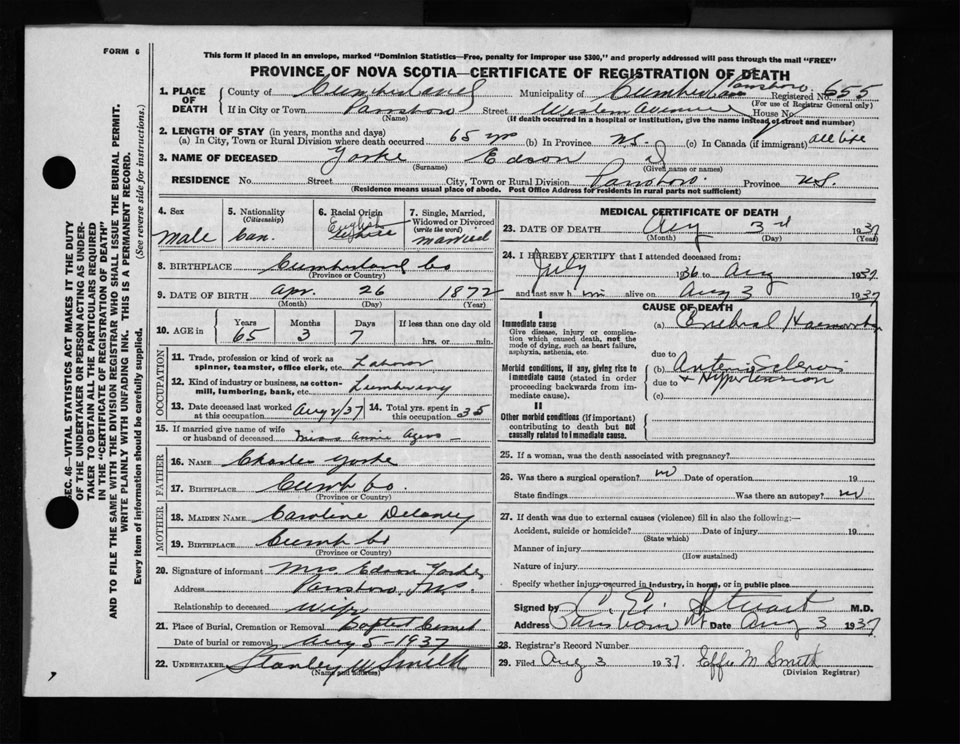 FORM 6
This form if placed in an envelope, marked "Dominion Statistics—Free, penalty for improper use $300," and properly addressed will pass through the mail "FREE"
PROVINCE OF NOVA SCOTIA—CERTIFICATE OF REGISTRATION OF DEATH
SEC. 46—VITAL STATISTICS ACT MAKES IT THE DUTY
OF THE UNDERTAKER OR PERSON ACTING AS UNDER-
TAKER TO OBTAIN ALL THE PARTICULARS REQUIRED
IN THE "CERTIFICATE OF REGISTRATION OF DEATH"
AND TO FILE THE SAME WITH THE DIVISION REGISTRAR WHO SHALL ISSUE THE BURIAL PERMIT.
WRITE PLAINLY WITH UNFADING INK. THIS IS A PERMANENT RECORD.
Every item of information should be carefully supplied. (See reverse side for instructions.)
1. PLACE OF DEATH
County of Cumberland Municipality of Cumberland Parrsboro Registered No. 655
(For use of Registrar General only)
If in City or Town Parrsboro Street Western Avenue House No.
(Name) (If death occurred in a hospital or institution, give the name instead of street and number)
2. LENGTH OF STAY (in years, months and days)
(a) In City, Town or Rural Division where death occurred 65 yrs (b) In Province N.S. (c) In Canada (if immigrant) all life
3. NAME OF DECEASED Yorke Edson
(Surname) (Given name or names)
RESIDENCE No. Street City, Town or Rural Division Parrsboro Province N.S.
(Residence means usual place of abode. Post Office Address for residents in rural parts not sufficient)
4. Sex Male
5. Nationality (Citizenship) Can.
6. Racial Origin English White
7. Single, Married, Widowed or Divorced (write the word) married
8. BIRTHPLACE Cumberland Co
(Province or Country)
9. DATE OF BIRTH Apr. 26 1872
(Month) (Day) (Year)
10. AGE in Years Months Days If less than one day old
65 3 7 hrs. or min.
OCCUPATION
11. Trade, profession or kind of work as spinner, teamster, office clerk, etc. Labour
12. Kind of industry or business, as cotton-mill, lumbering, bank, etc.
13. Date deceased last worked at this occupation Aug 2/37 14. Total yrs. spent in this occupation 35
15. If married give name of wife or husband of deceased Miss Annie
FATHER
16. NAME Charles Yorke
17. BIRTHPLACE Cumb Co.
(Province or Country)
MOTHER
18. MAIDEN NAME Caroline Delaney
19. BIRTHPLACE Cumb Co
(Province or Country)
20. Signature of informant Mrs Edson Yorke
Address Parrsboro, N.S.
Relationship to deceased Wife
21. Place of Burial, Cremation or Removal Baptist Cemet
Date of burial or removal Aug 5 - 1937
22. UNDERTAKER Stanley W Smith
(Name and Address)
MEDICAL CERTIFICATE OF DEATH
23. DATE OF DEATH Aug 3rd 1937
(Month) (Day) (Year)
24. I HEREBY CERTIFY that I attended deceased from:
July 1936 to Aug 1937
and last saw him alive on Aug 3 1937
CAUSE OF DEATH
I
Immediate cause
Give disease, injury or complication which caused death, not the mode of dying, such as heart failure, asphyxia, asthenia, etc.
(a) Cerebral Haemorrhage
due to
Morbid conditions, if any, giving rise to immediate cause (stated in order proceeding backwards from immediate cause).
(b) Arterio Sclerosis
due to + Hypertension
(c)
II
Other morbid conditions (if important) contributing to death but not causally related to immediate cause.
25. If a woman, was the death associated with pregnancy?
26. Was there a surgical operation? no Date of operation 19
State findings Was there an autopsy? no
27. If death was due to external causes (violence) fill in also the following:—
Accident, suicide or homicide? Date of injury 19
(State which)
Manner of injury
(How sustained)
Nature of injury
Specify whether injury occurred in industry, in home, or in public place
Signed by C. E. Stuart M.D.
Address Parrsboro NS Date Aug 3 1937
28. Registrar's Record Number
29. Filed Aug 3 1937. Effie M. Smith
(Division Registrar)